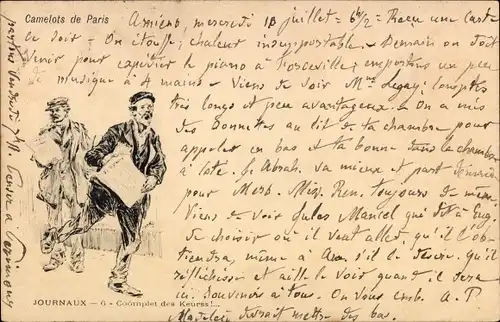 Camelots de Paris
Amiens, mercredi 18 juillet = 6h/2 = Reçu une carte
ce soir - On étouffe; chaleur insupportable. - Demain on doit
venir pour expédier le piano à Forceville; emportons un peu
de musique à 4 mains - Viens de voir Mme Legay; comptes
très longs et peu avantageux. On a mis
des sonnettes au lit de ta chambre pour
appeler en bas et ta bonne dans la chambre
à côté. J. Abrah. va mieux et part
pour Merb. toujours de même
Viens de voir Jules Mancel qui dit à Eug
de choisir où il veut aller, qu'il l'ob-
tiendra, même à s'il le désire. qu'il
réfléchisse et aille le voir quand il sera
ici. Souvenirs à tous. On vous emb. A. P.
devrait mettre des bas.
JOURNAUX - 6 - Coomplet des Keurss!...